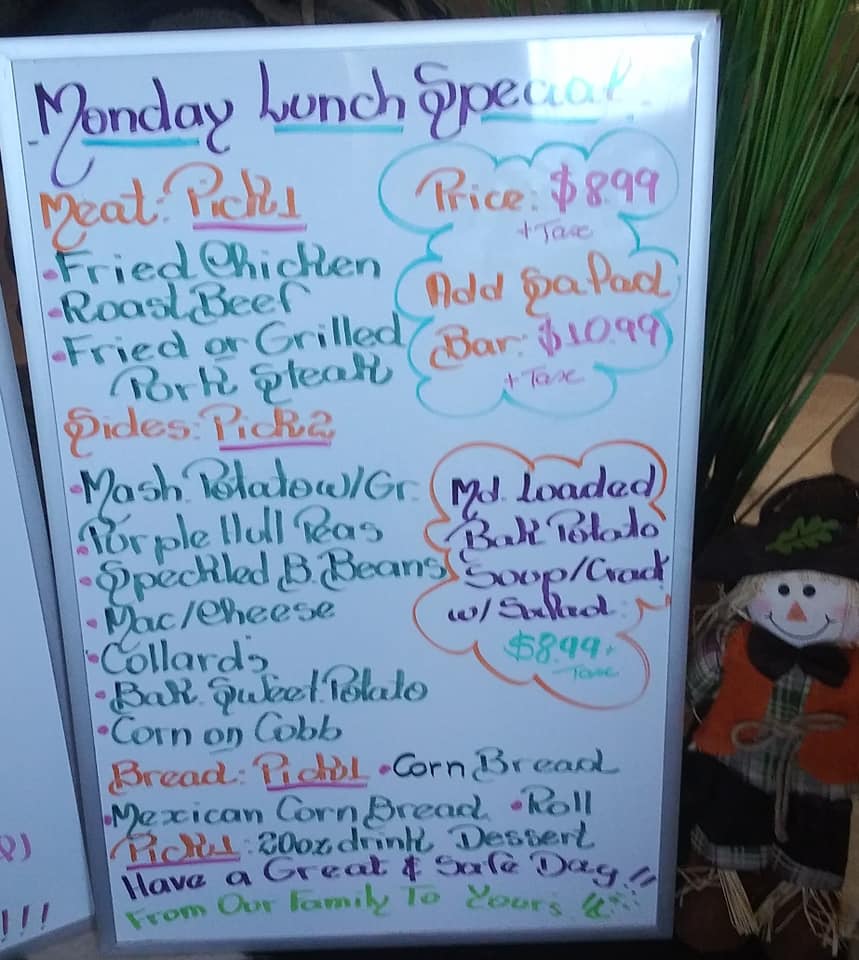 Monday Lunch Special
Meat: Pick 1
• Fried Chicken
• Roast Beef
• Fried or Grilled
Pork Steak
Price: $8.99
+ Tax
Add Salad
Bar: $10.99
+ Tax
Sides: Pick 2
• Mash Potato w/Gr.
• Purple Hull Peas
• Speckled B. Beans
• Mac/Cheese
• Collards
• Bak Sweet Potato
• Corn on Cobb
Md. Loaded
Bak Potato
Soup/Crack
w/ Salad
$8.99+
Tax
Bread: Pick 1 • Corn Bread
• Mexican Corn Bread • Roll
Pick 1: 20oz drink Dessert
Have a Great & Safe Day!!
From Our Family To Yours
!!!